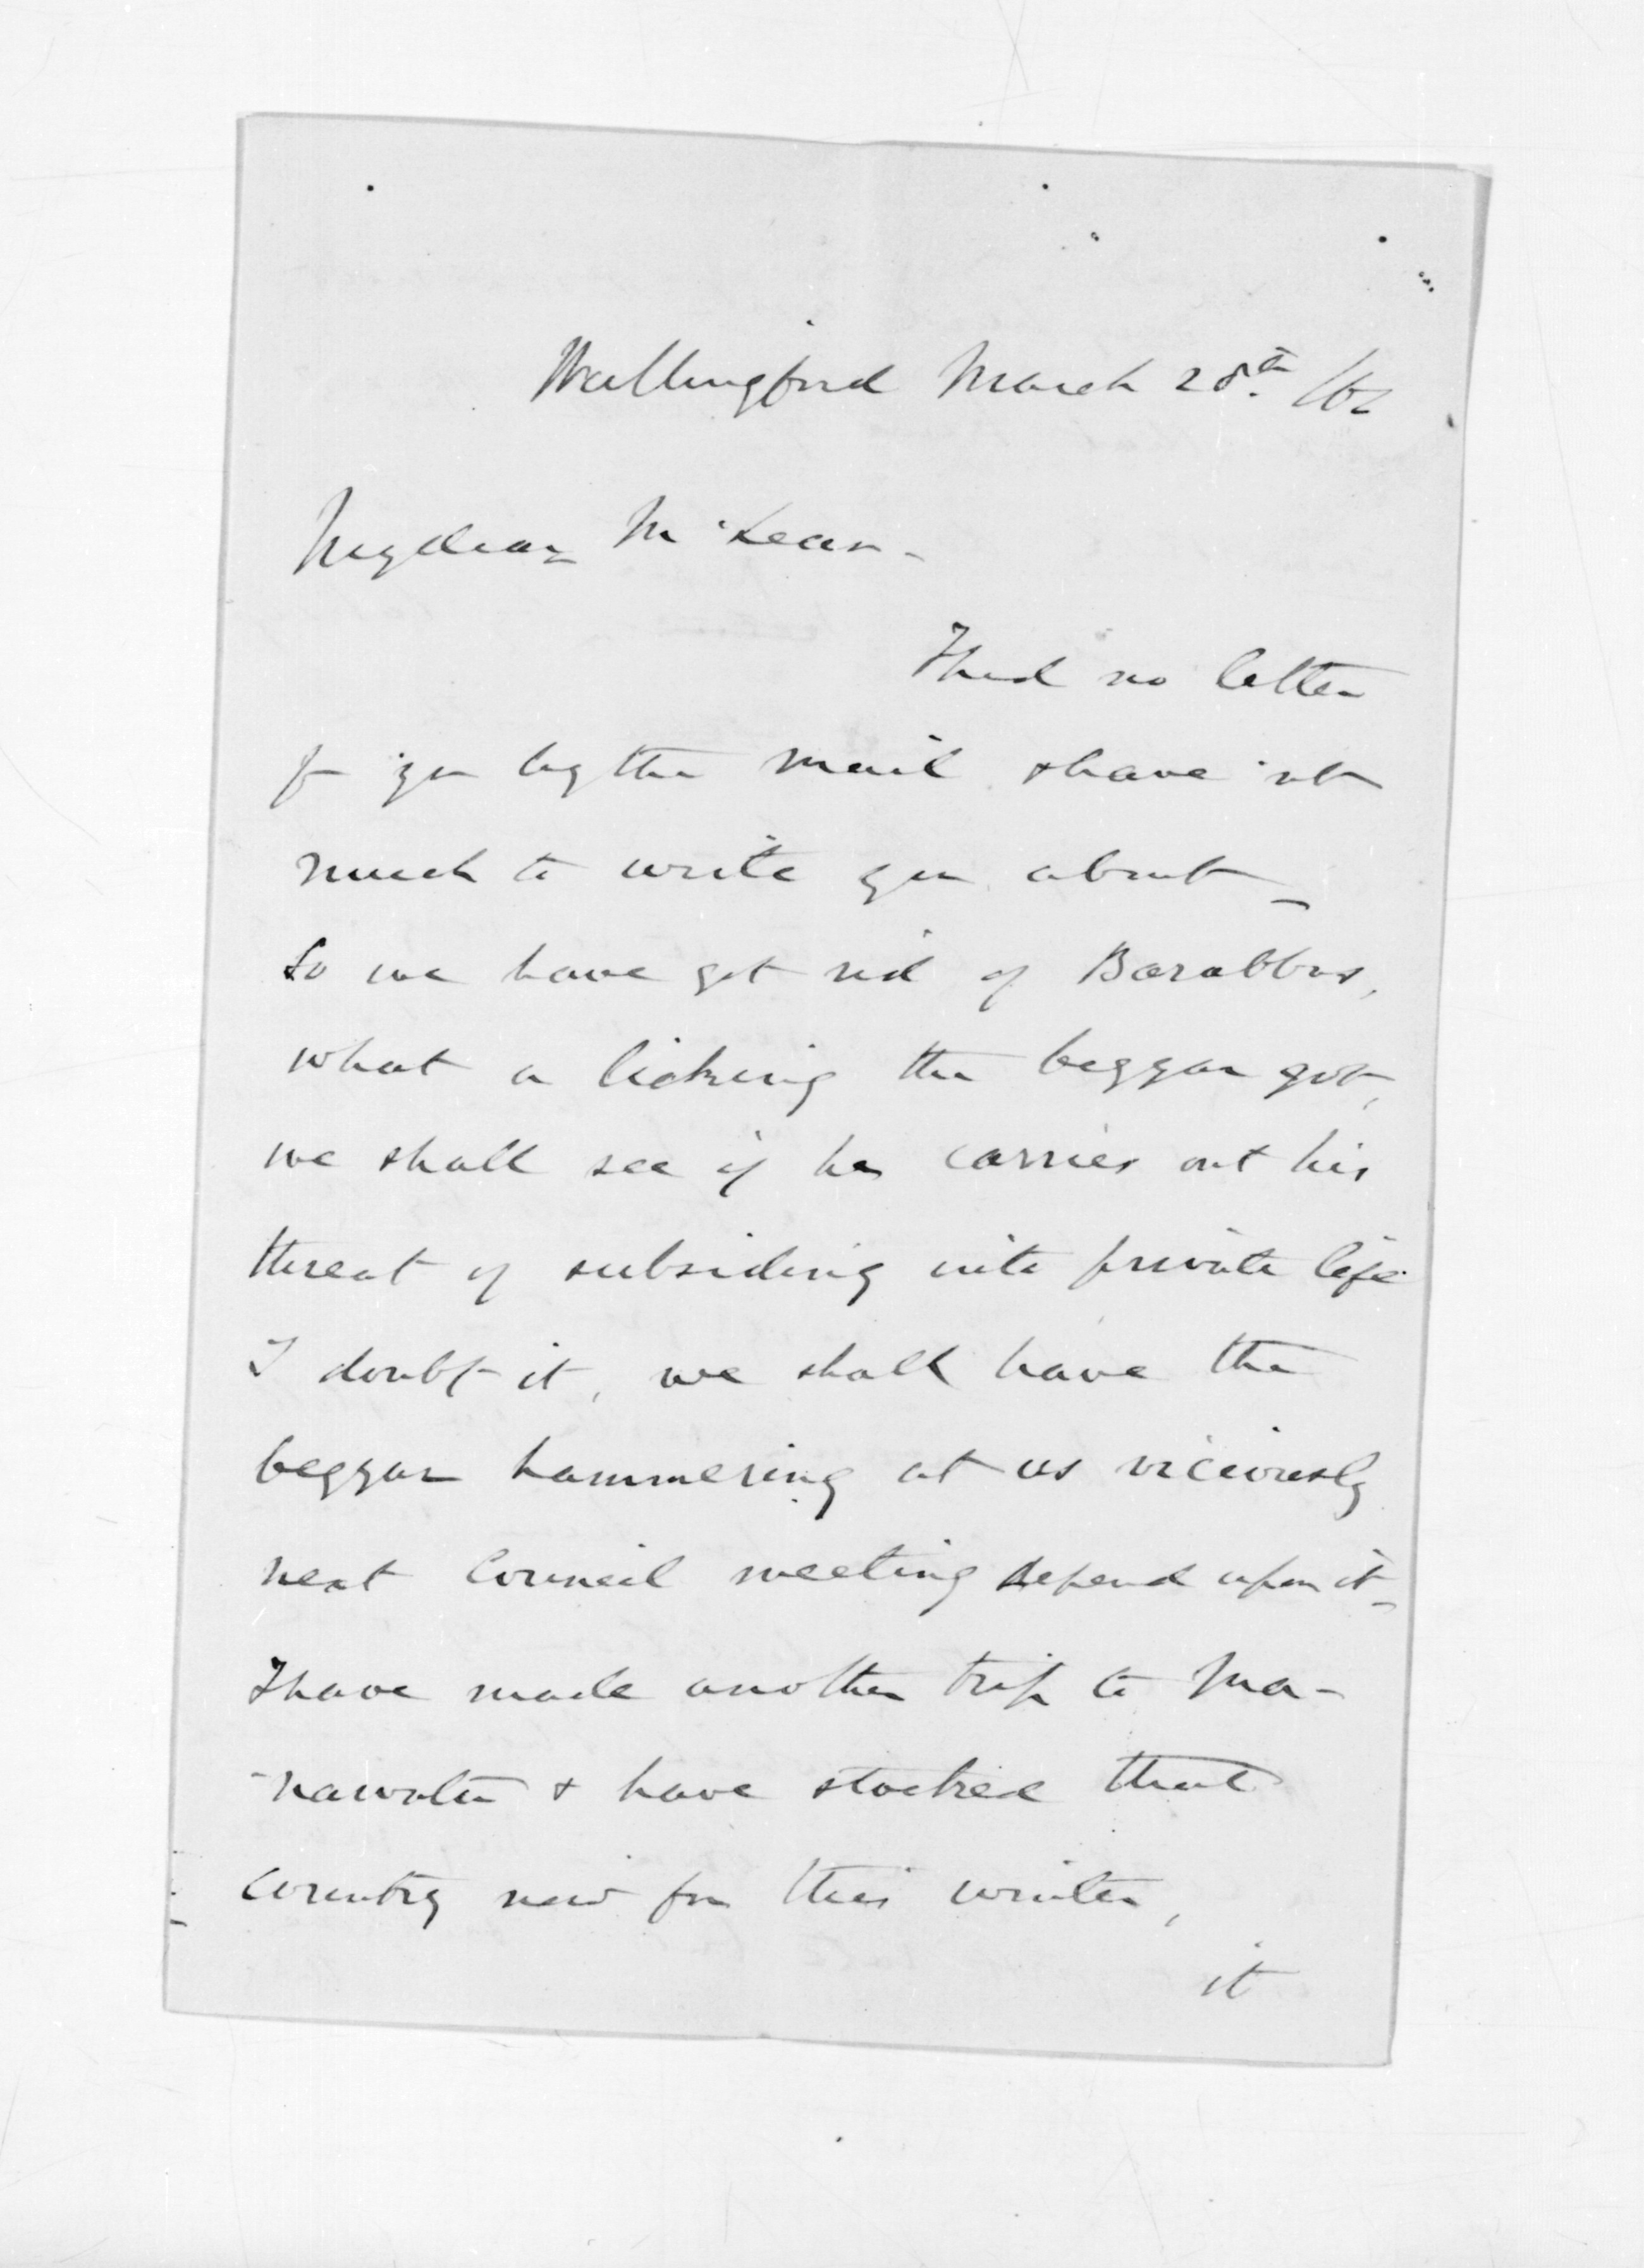 Wallingford March 28th /62
My dear McLean -
I had no letter
fr you by the mail & have not
much to write you about _
So we have got rid of Barabbas,
what a licking the beggar got,
we shall see if he carries out his
threat of subsiding into private life
I doubt it, we shall have the
beggar hammering at us viciously
next Council meeting depend upon it _
I have made another trip to Ma-
-nawatu & have stocked that
country now for this winter,
it